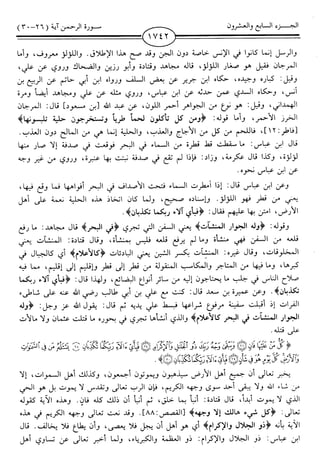 الجـــزء السابع والعشرون
١٧٤٢
سورة الرحمن آية (٢٦-٣٠)
والرسل إنما كانوا في الإنس خاصة دون الجن وقد صح هذا الإطلاق. واللؤلؤ معروف، وأما
المرجان فقيل هو صغار اللؤلؤ، قاله مجاهد وقتادة وأبو رزين والضحاك وروي عن علي،
وقيل: كباره وجيده، حكاه ابن جرير عن بعض السلف ورواه ابن أبي حاتم عن الربيع بن
أنس، وحكاه السدي عمن حدثه عن ابن عباس، وروي مثله عن علي ومجاهد أيضاً ومرة
الهمداني، وقيل: هو نوع من الجواهر أحمر اللون، عن عبد الله [بن مسعود] قال: المرجان
الخرز الأحمر، وأما قوله: ﴿ومن كل تأكلون لحماً طرياً وتستخرجون حلية تلبسونها﴾
[فاطر: ١٢]، فاللحم من كل من الأجاج والعذب، والحلية إنما هي من المالح دون العذب.
قال ابن عباس: ما سقطت قط قطرة من السماء في البحر فوقعت في صدفة إلا صار منها
لؤلؤة، وكذا قال عكرمة، وزاد: فإذا لم تقع في صدفة نبتت بها عنبرة، وروي من غير وجه
عن ابن عباس نحوه.
وعن ابن عباس قال: إذا أمطرت السماء فتحت الأصداف في البحر أفواهها فما وقع فيها،
يعني من قطر فهو اللؤلؤ. وإسناده صحيح، ولما كان اتخاذ هذه الحلية نعمة على أهل
الأرض، امتن بها عليهم فقال: ﴿فبأي آلاء ربكما تكذبان﴾.
وقوله: ﴿وله الجوار المنشآت﴾ يعني السفن التي تجري ﴿في البحر﴾ قال مجاهد: ما رفع
قلعه من السفن فهي منشأة وما لم يرفع قلعه فليس بمنشأة، وقال قتادة: المنشآت يعني
المخلوقات، وقال غيره: المنشئات بكسر الشين يعني البادئات ﴿كالأعلام﴾ أي كالجبال في
كبرها، وما فيها من المتاجر والمكاسب المنقولة من قطر إلى قطر وإقليم إلى إقليم، مما فيه
صلاح الناس في جلب ما يحتاجون إليه من سائر أنواع البضائع، ولهذا قال: ﴿فبأي آلاء ربكما
تكذبان﴾. وعن عميرة بن سعد قال: كنت مع علي بن أبي طالب رضي الله عنه على شاطىء
الفرات إذ أقبلت سفينة مرفوع شراعها فبسط علي يديه ثم قال: يقول الله عز وجل: ﴿وله
الجوار المنشآت في البحر كالأعلام﴾ والذي أنشأها تجري في بحوره ما قتلت عثمان ولا مالأت
على قتله.
يخبر تعالى أن جميع أهل الأرض سيذهبون ويموتون أجمعون، وكذلك أهل السموات، إلا
من شاء الله ولا يبقى أحد سوى وجهه الكريم، فإن الرب تعالى وتقدس لا يموت بل هو الحي
الذي لا يموت أبداً، قال قتادة: أنبأ بما خلق، ثم أنبأ أن ذلك كله فان. وهذه الآية كقوله
تعالى: ﴿كل شيء هالك إلا وجهه﴾ [القصص: ٨٨]. وقد نعت تعالى وجهه الكريم في هذه
الآية بأنه ﴿ذو الجلال والإكرام﴾ أي هو أهل أن يجل فلا يعصى، وأن يطاع فلا يخالف. قال
ابن عباس: ذو الجلال والإكرام: ذو العظمة والكبرياء، ولما أخبر تعالى عن تساوي أهل